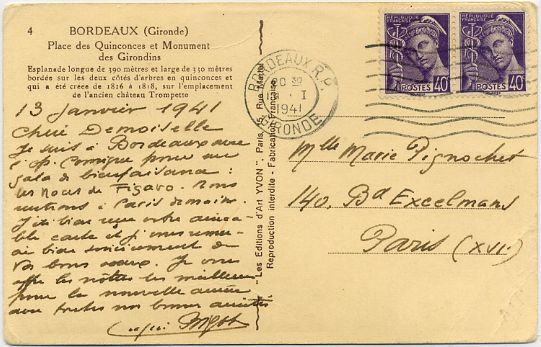 4 BORDEAUX (Gironde)
Place des Quinconces et Monument
des Girondins
Esplanade longue de 390 mètres et large de 330 mètres
bordée sur les deux côtés d'arbres en quinconces et
qui a été créée de 1816 à 1818, sur l'emplacement
de l'ancien château Trompette
13 Janvier 1941
Chère Demoiselle
Je suis à Bordeaux avec
l'Op. Comique pour un
gala de bienfaisance :
les Noces de Figaro. Nous
rentrons à Paris demain.
J'ai bien reçu votre aima-
ble carte et je vous remer-
cie bien sincèrement de
vos bons vœux. Je vous
offre les nôtres les meilleurs
pour la nouvelle année
avec toutes nos bonnes amitiés
"Les Editions d'Art YVON", Paris, Rue
Reproduction interdite - Fabrication Française
BORDEAUX R.P
1941
GIRONDE
REPUBLIQUE FRANÇAISE
POSTES 40
REPUBLIQUE FRANÇAISE
POSTES 40
Mlle Marie Pignochet
140. Bd Excelmans
Paris (XVI)